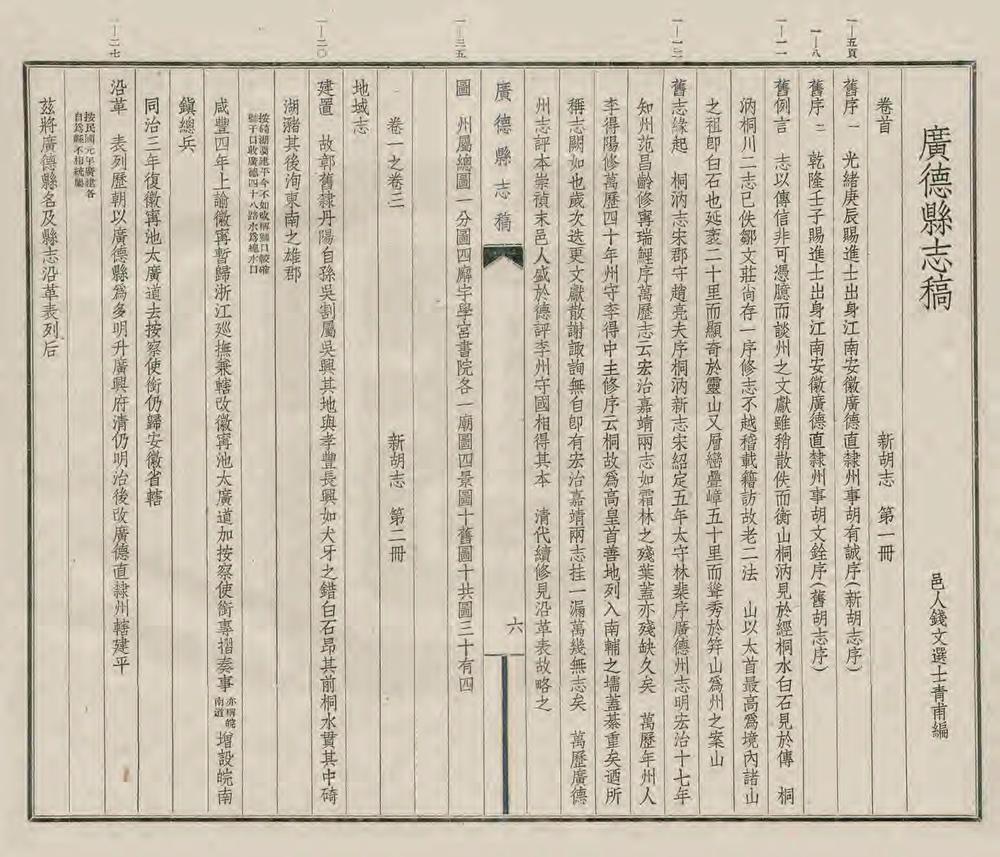 廣德縣志稿
邑人錢文選士青甫編
卷首　新胡志　第一冊
一—五頁
舊序一　光緒庚辰賜進士出身江南安徽廣德直隸州事胡有誠序(新胡志序)
一—八
舊序二　乾隆壬子賜進士出身江南安徽廣德直隸州事胡文銓序(舊胡志序)
一—一一
舊例言　志以傳信非可憑臆而談州之文獻雖稍散佚而衡山桐汭見於經桐水白石見於傳　桐
汭桐川二志已佚鄒文莊尙存一序修志不越稽載籍訪故老二法　山以太首最高爲境內諸山
之祖卽白石也延袤二十里而顯奇於靈山又層巒疊嶂五十里而聳秀於筓山爲州之案山
一—一三
舊志緣起　桐汭志宋郡守趙亮夫序桐汭新志宋紹定五年太守林棐序廣德州志明宏治十七年
知州范昌齡修甯瑞鯉序萬歷志云宏治嘉靖兩志如霜林之殘葉蓋亦殘缺久矣　萬歷年州人
李得陽修萬歷四十年州守李得中主修序云桐故爲高皇首善地列入南輔之壖蓋綦重矣迺所
稱志闕如也歲次迭更文獻散謝諏詢無自卽有宏治嘉靖兩志挂一漏萬幾無志矣　萬歷廣德
州志評本崇禎末邑人盛於德評李州守國相得其本　清代續修見沿革表故略之
廣德縣志稿
六
一—三五
圖　州屬總圖一分圖四廨宇學宮書院各一廟圖四景圖十舊圖十共圖三十有四
卷一之卷三　新胡志　第二冊
地域志
一—二〇
建置　故鄣舊隸丹陽自孫吳割屬吳興其地與孝豐長興如犬牙之錯白石昂其前桐水貫其中碕
湖瀦其後洵東南之雄郡
咸豐四年上諭徽甯暫歸浙江廵撫兼轄改徽甯池太廣道加按察使銜專摺奏事亦稱皖南道增設皖南
鎭總兵
同治三年復徽甯池太廣道去按察使銜仍歸安徽省轄
一—二七
沿革　表列歷朝以廣德縣爲多明升廣興府清仍明治後改廣德直隸州轄建平
按民國元年廣建各
自爲縣不相統屬
茲將廣德縣名及縣志沿革表列后